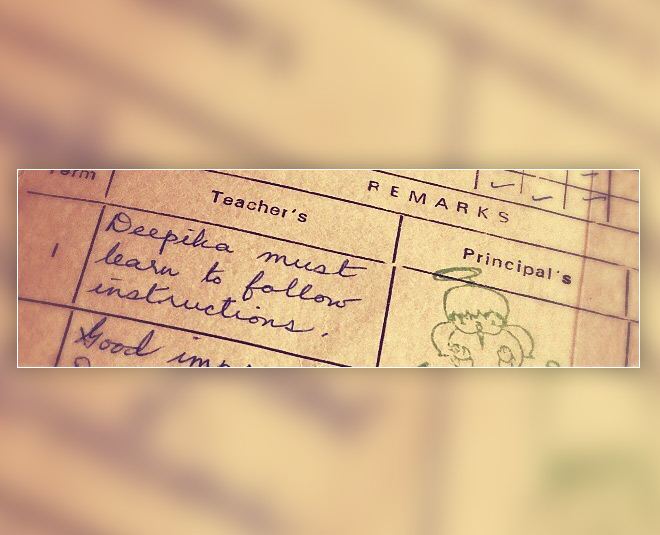 REMARKS
Teacher's
Principal's
1
Deepika must
learn to follow
instructions.
Good